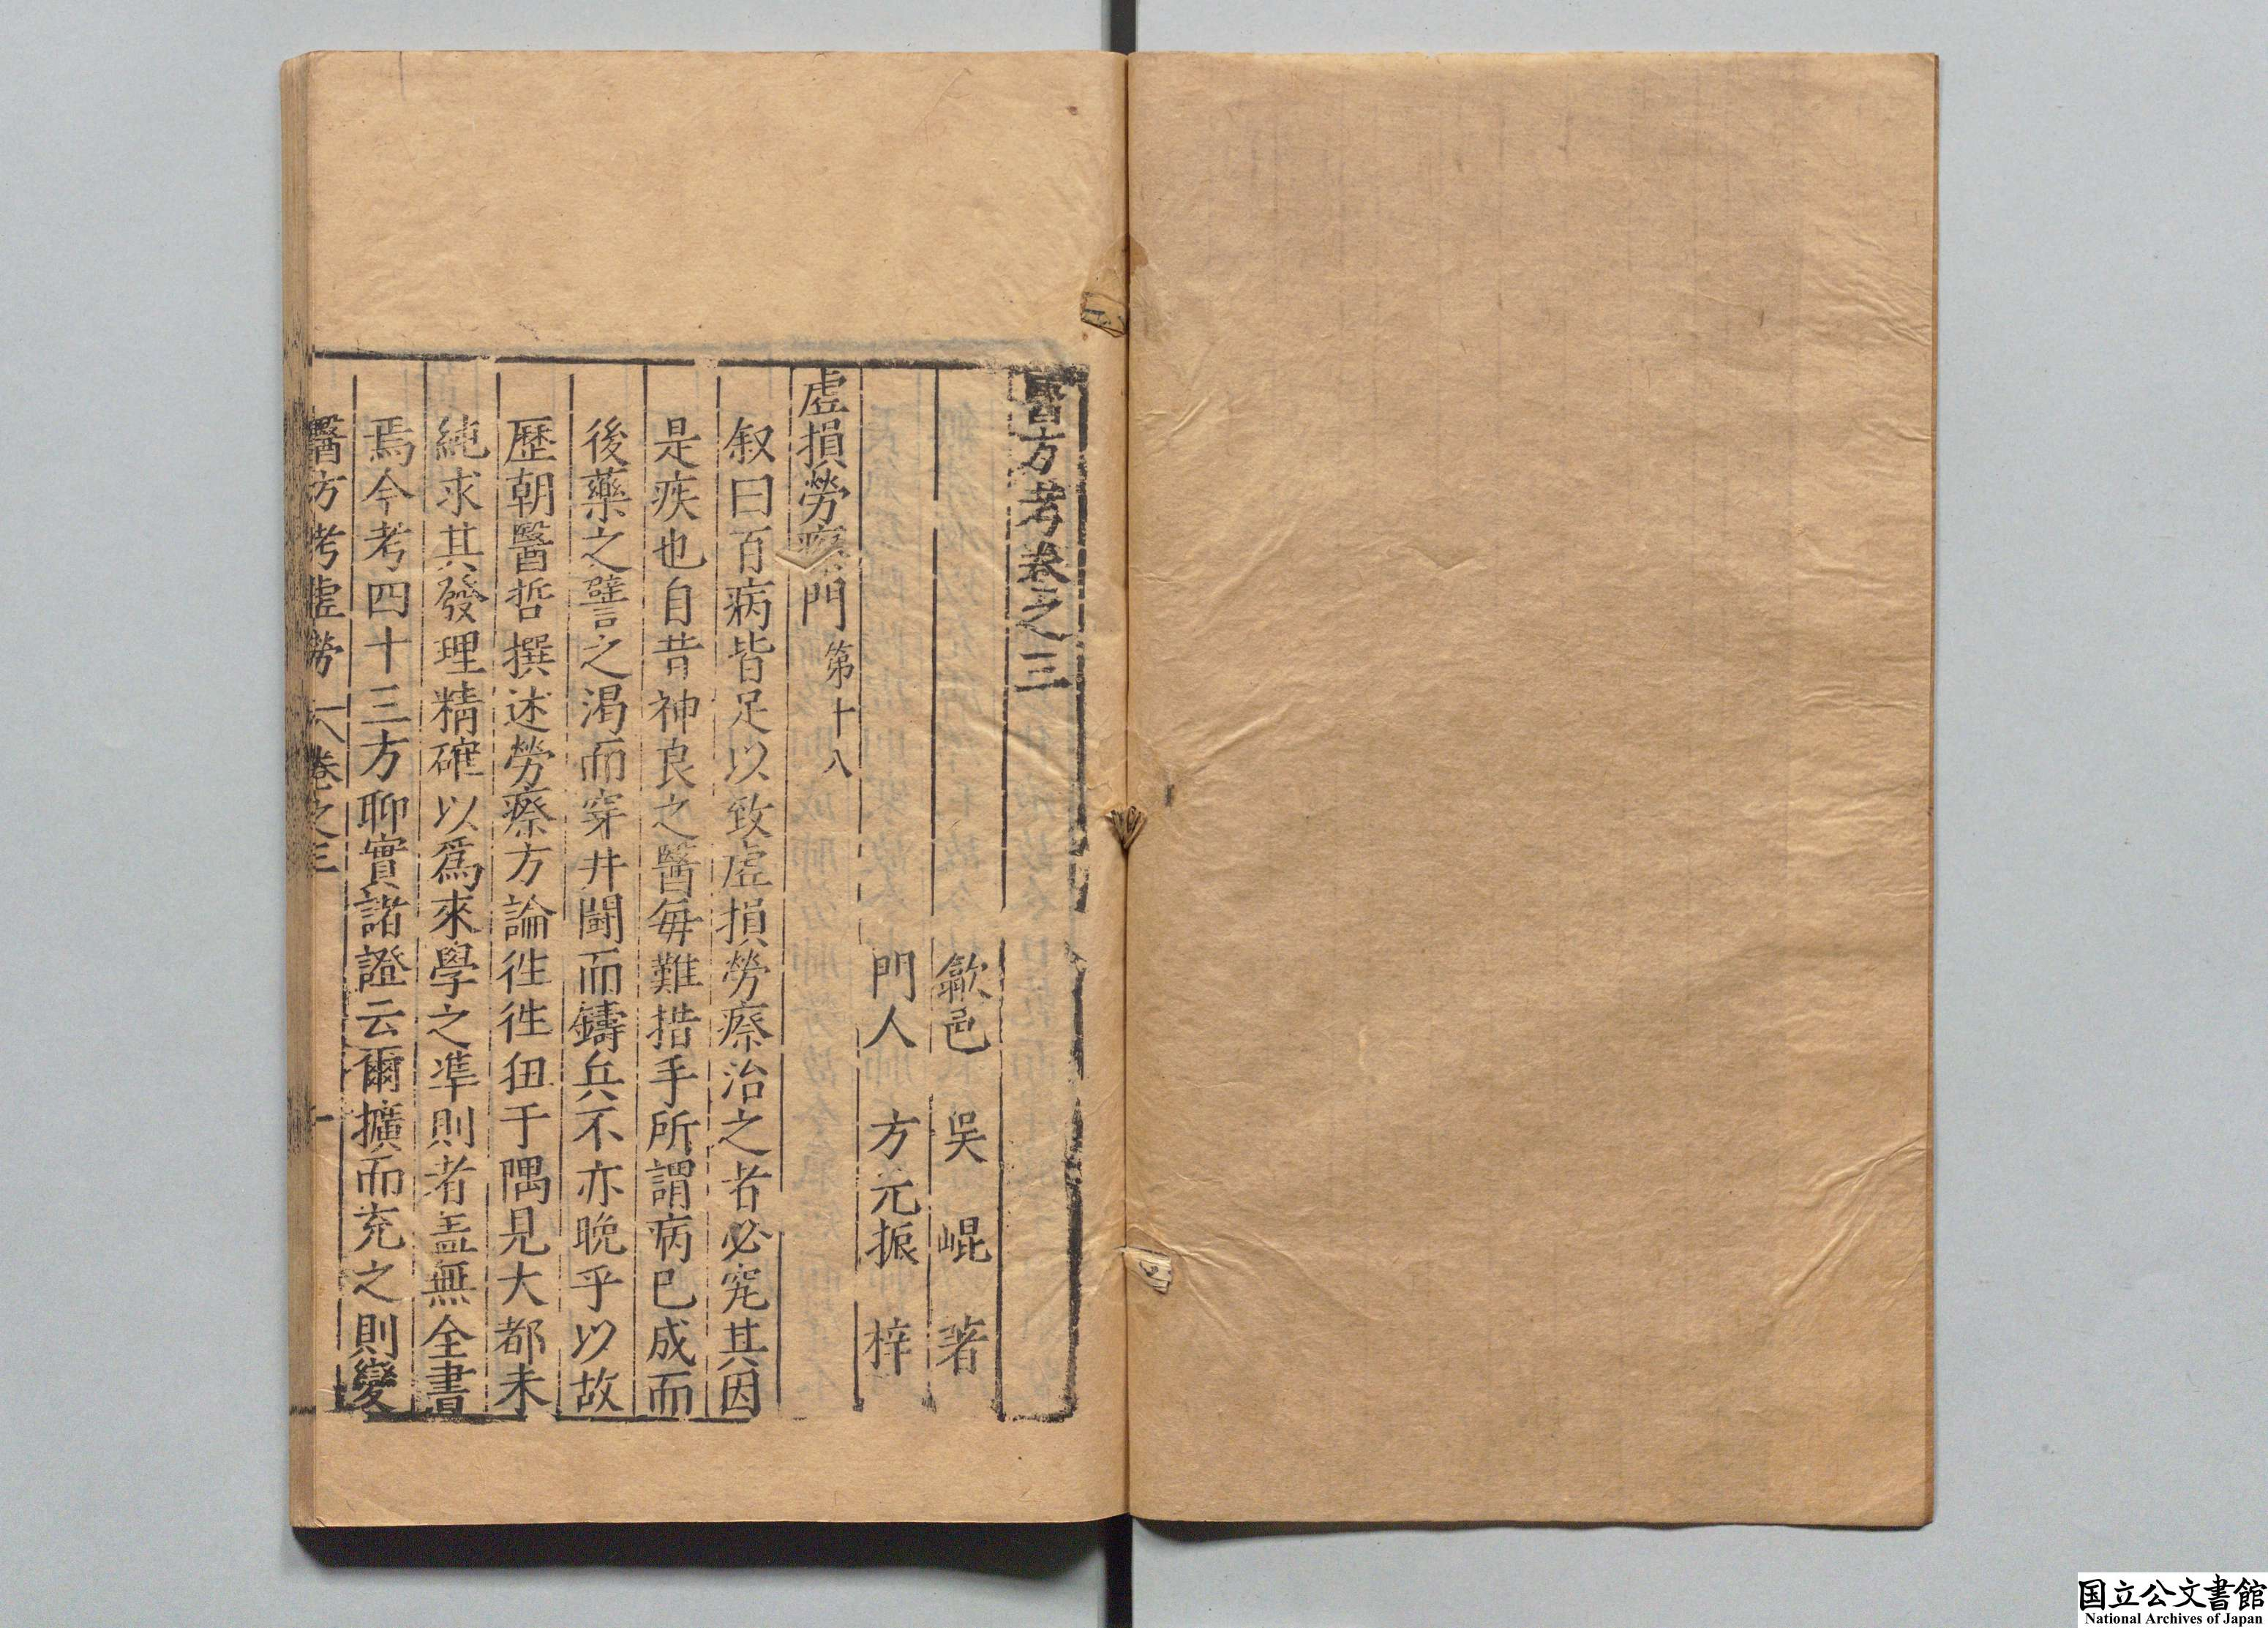 醫方考卷之三
歙邑 吳 崐 著
門人 方元振 梓
虛損勞瘵門第十八
叙曰百病皆足以致虛損勞瘵治之者必究其因
是疾也自昔神良之醫每難措手所謂病已成而
後藥之譬之渴而穿井鬪而鑄兵不亦晚乎以故
歷朝醫哲撰述勞瘵方論徃徃狃于隅見大都未
純求其發理精確以爲來學之準則者盖無全書
焉今考四十三方聊實諸證云爾擴而充之則變
醫方考虛勞 卷之三 一
国立公文書館
National Archives of Japan